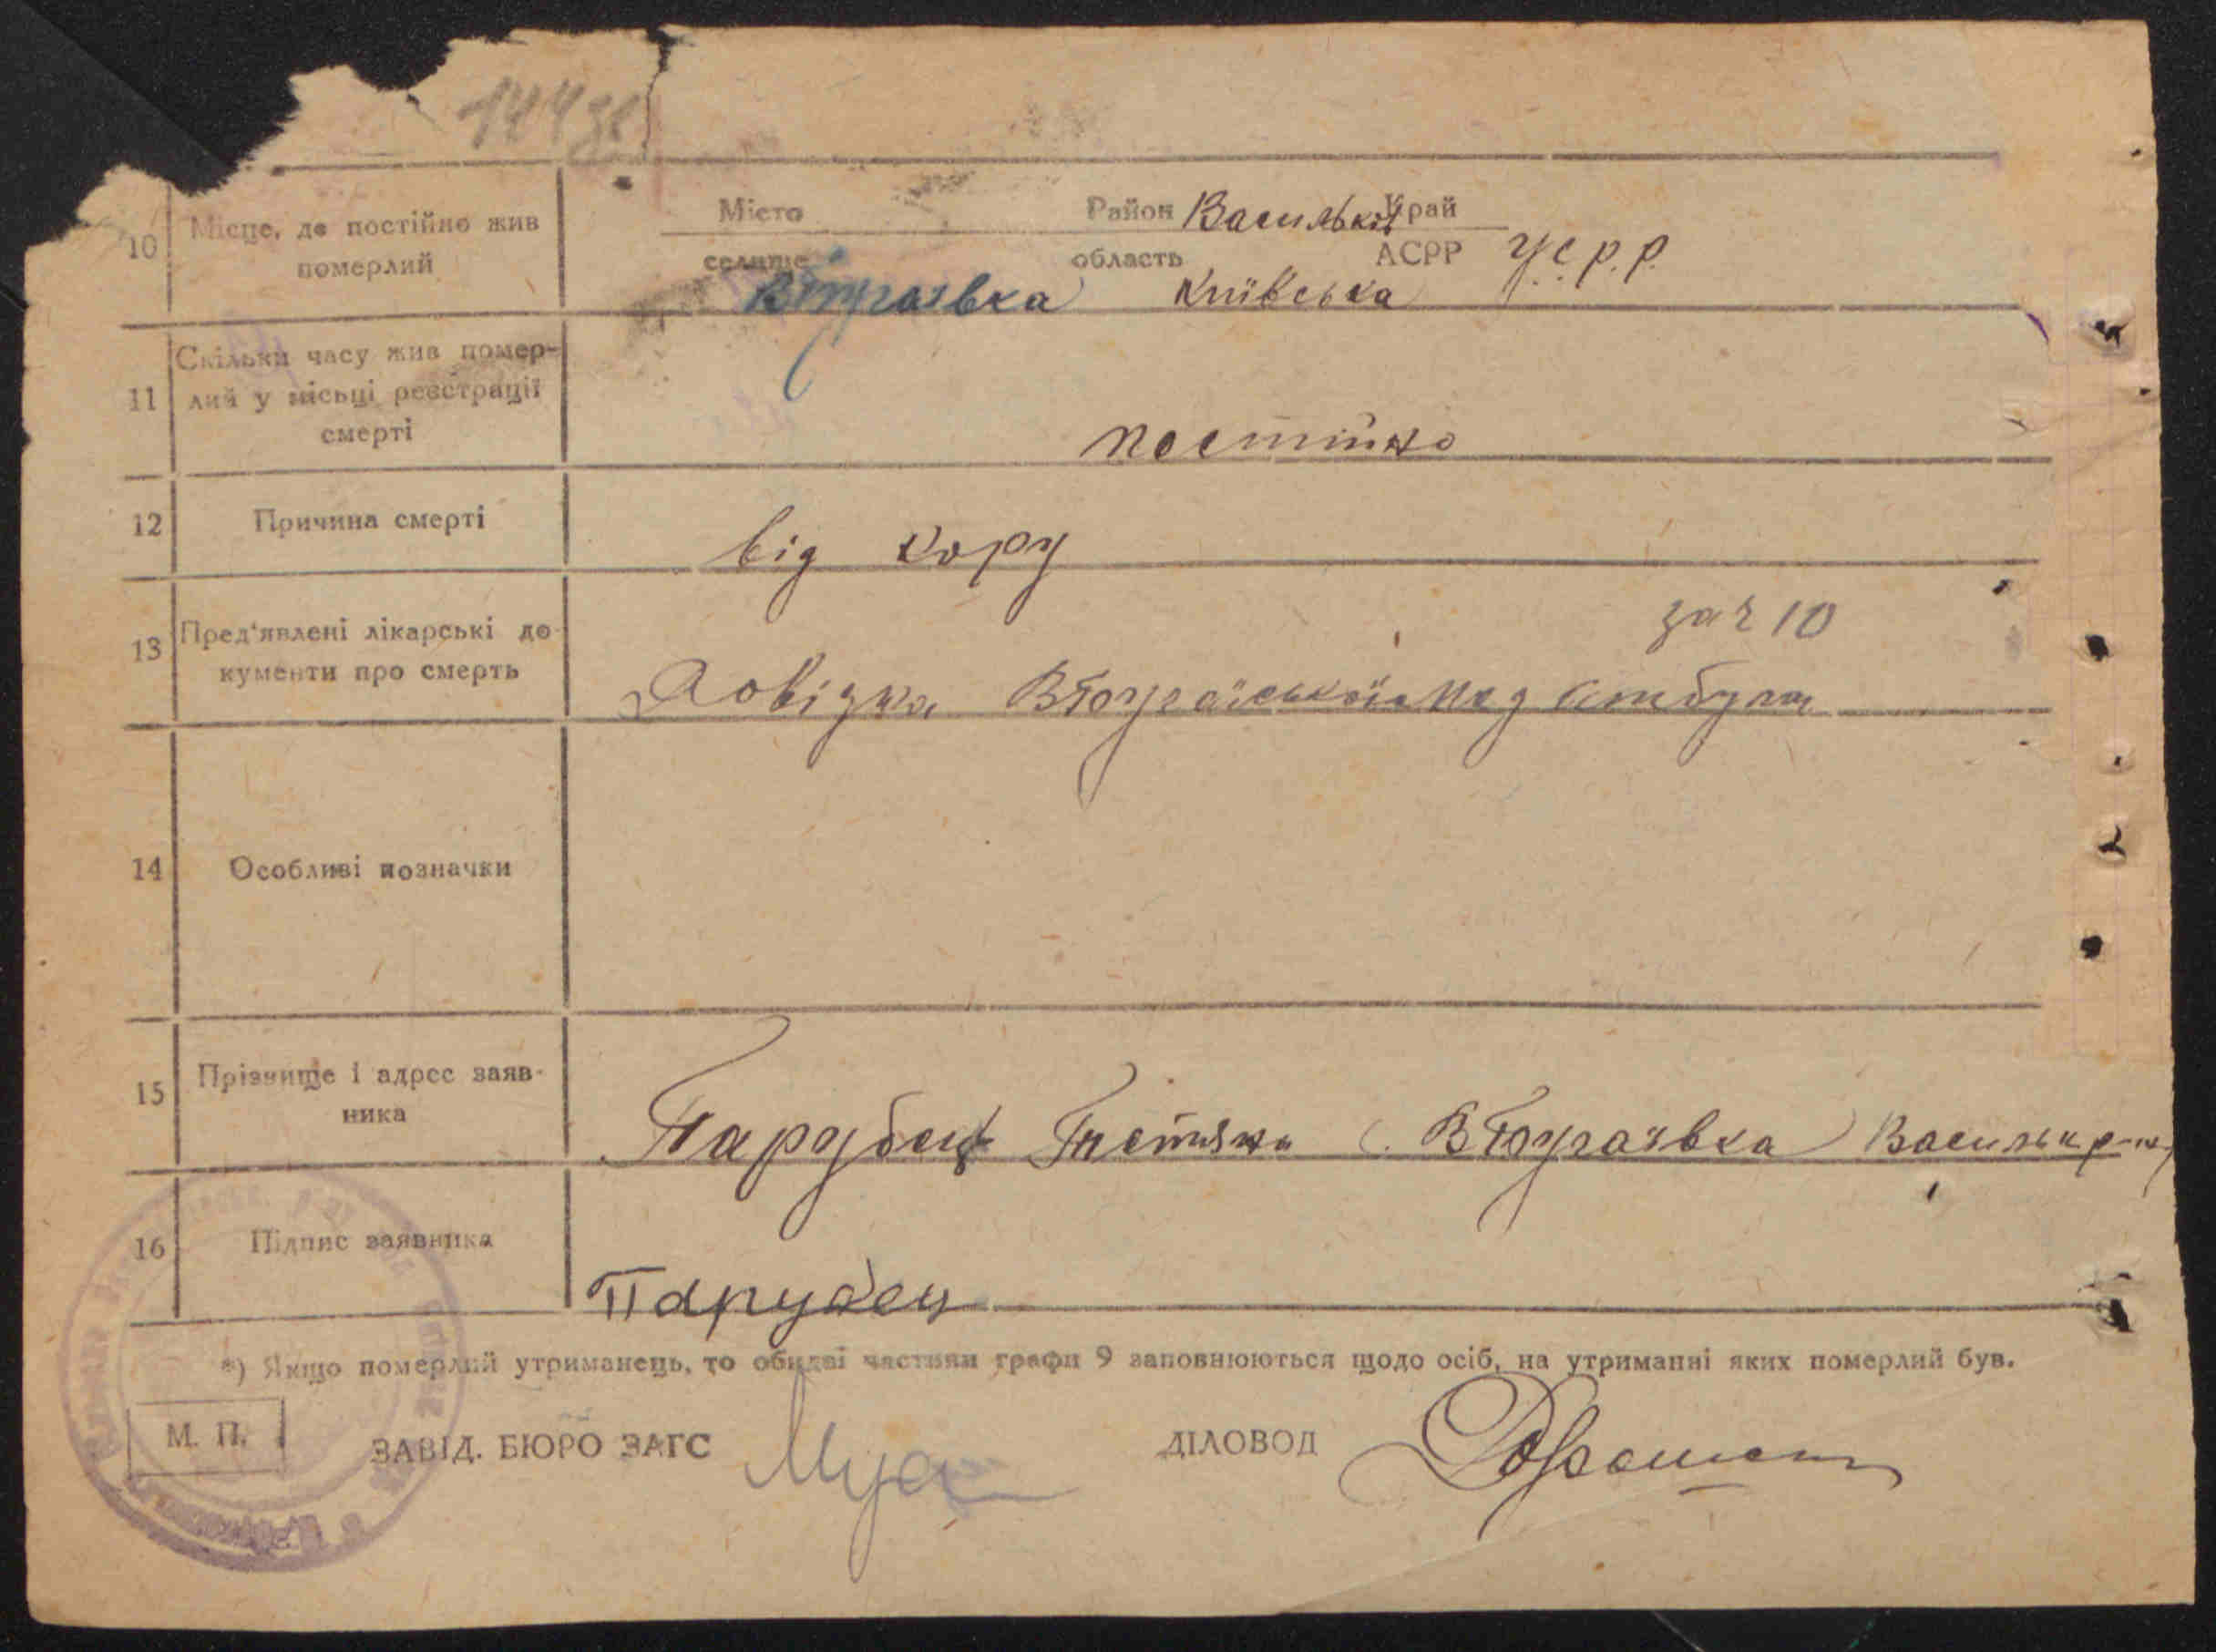 144 зв
10 Місце, де постійно жив померлий
Місто Район Васильків Край
селище область АСРР У.С.Р.Р.
Втораївка Київська
11 Скільки часу жив помер-
лий у місьці реєстрації
смерті
постійно
12 Причина смерті
від кору
13 Пред'явлені лікарські до-
кументи про смерть
за ч 10
Довідка Втораївської мед амбула
14 Особливі позначки
15 Прізвище і адрес заяв-
ника
Парубец с. Втораївка Васильк р-ну
16 Підпис заявника
Парубец
*) Якщо померлий утриманець, то обидві частини графи 9 заповнюються щодо осіб, на утриманні яких померлий був.
М. П.
ЗАВІД. БЮРО ЗАГС ДІЛОВОД